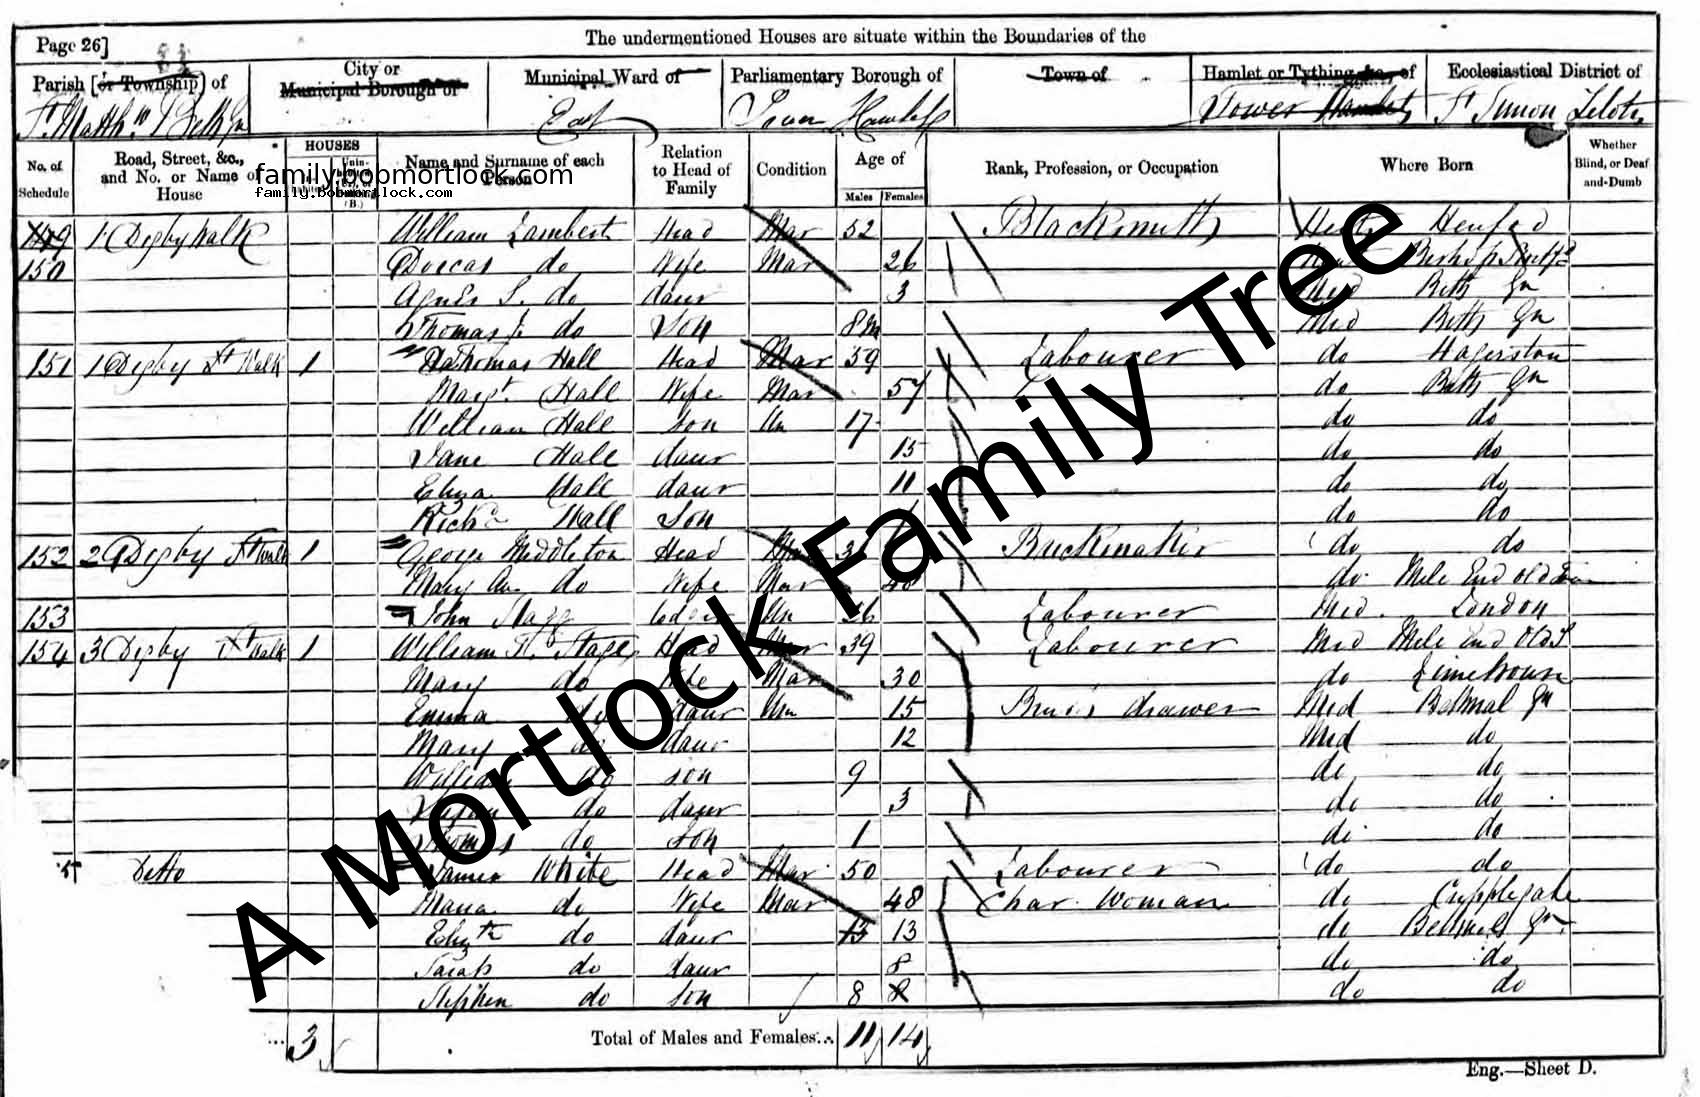 Page 26]
The undermentioned Houses are situate within the Boundaries of the
Parish [or Township] of
City or
Municipal Borough of
Municipal Ward of
Parliamentary Borough of
Town of
Hamlet or Tything, &c., of
Ecclesiastical District of
East
Tower Hamlets
Tower Hamlets
St Simon Zelotes
No. of Schedule
Road, Street, &c., and No. or Name of House
HOUSES
Name and Surname of each Person
Relation to Head of Family
Condition
Age of
Males
Females
Rank, Profession, or Occupation
Where Born
Whether Blind, or Deaf-and-Dumb
family.bopmortlock.com
family.bobmortlock.com
149 1 Digby Walk William Lambert Head Mar 52 Blacksmith
150 Dorcas do Wife Mar 26
Agnes S. do daur 3 Mid Beth Gn
Thomas J. do Son 8m Mid Beth Gn
151 1 Digby St Walk 1 Thomas Hall Head Mar 59 Labourer do Hagerston
Margt Hall Wife Mar 57 do Beth Gn
William Hall Son Un 17 do do
Jane Hall daur 15 do do
Eliza Hall daur 11 do do
Richd Hall Son do do
152 2 Digby St Walk 1 George Middleton Head Mar Brickmaker do do
Mary Ann do Wife Mar 40 do Mile End Old Town
153 John Stagg Lodger Un Labourer Mid London
154 3 Digby St Walk 1 William Stagg Head Mar 39 Labourer Mid Mile End Old T
Mary do Wife Mar 30 do Limehouse
Emma do daur Un 15 drawer Mid Bethnal Gn
Mary do daur 12 Mid do
William do son 9 do do
do daur 3 do do
Thomas do Son 1 do do
Ditto James White Head Mar 50 Labourer do do
Maria do Wife Mar 48 Char Woman do Cripplegate
Elizth do daur 13 13 do Bethnal Gn
Sarah do daur 8 do do
Stephen do son 8 8 do do
3 Total of Males and Females... 11 14
Eng.—Sheet D.
A Mortlock Family Tree